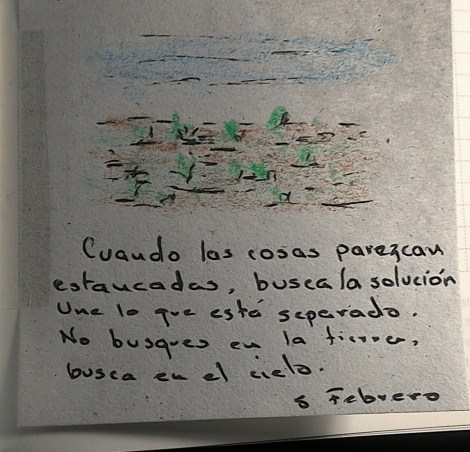 Cuando las cosas parezcan
estancadas, busca la solución
Une lo que está separado.
No busques en la tierra,
busca en el cielo.
8 Febrero